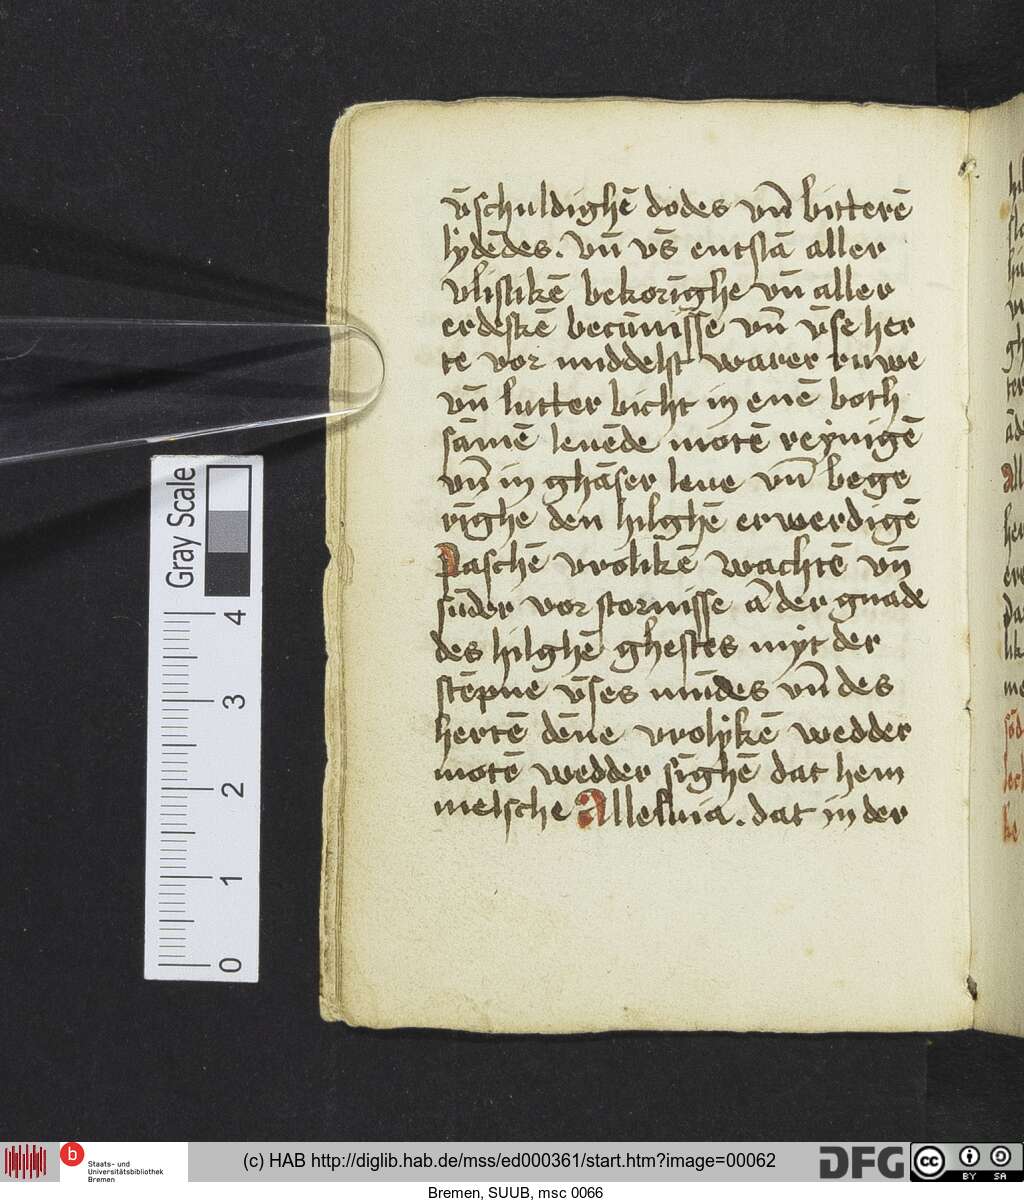 v̄schuldighē dodes vn̄ bitterē
lydēdes. vn̄ vs̄ entslā aller
vlistikē bekorīghe vn̄ aller
erdeskē becūnisse vn̄ v̄se her
te vor middelst warer ruwe
vn̄ lutter bicht in enē both
sāmē leuēde motē reynigē
vn̄ in ghāser leue vn̄ bege
rīghe den hilghē erwerdigē
Paschē vrolikē wachtē vn̄
sūder vorstornisse ā der gnade
des hilghē ghestes myt der
stēpne v̄ses mūdes vn̄ des
hertē dēne vrolykē wedder
motē wedder sīghē dat hem
melsche Alleluia. dat in der
Gray Scale
4
3
2
1
0
b
Staats- und
Universitätsbibliothek
Bremen
(c) HAB http://diglib.hab.de/mss/ed000361/start.htm?image=00062
DFG
cc
BY SA
Bremen, SUUB, msc 0066